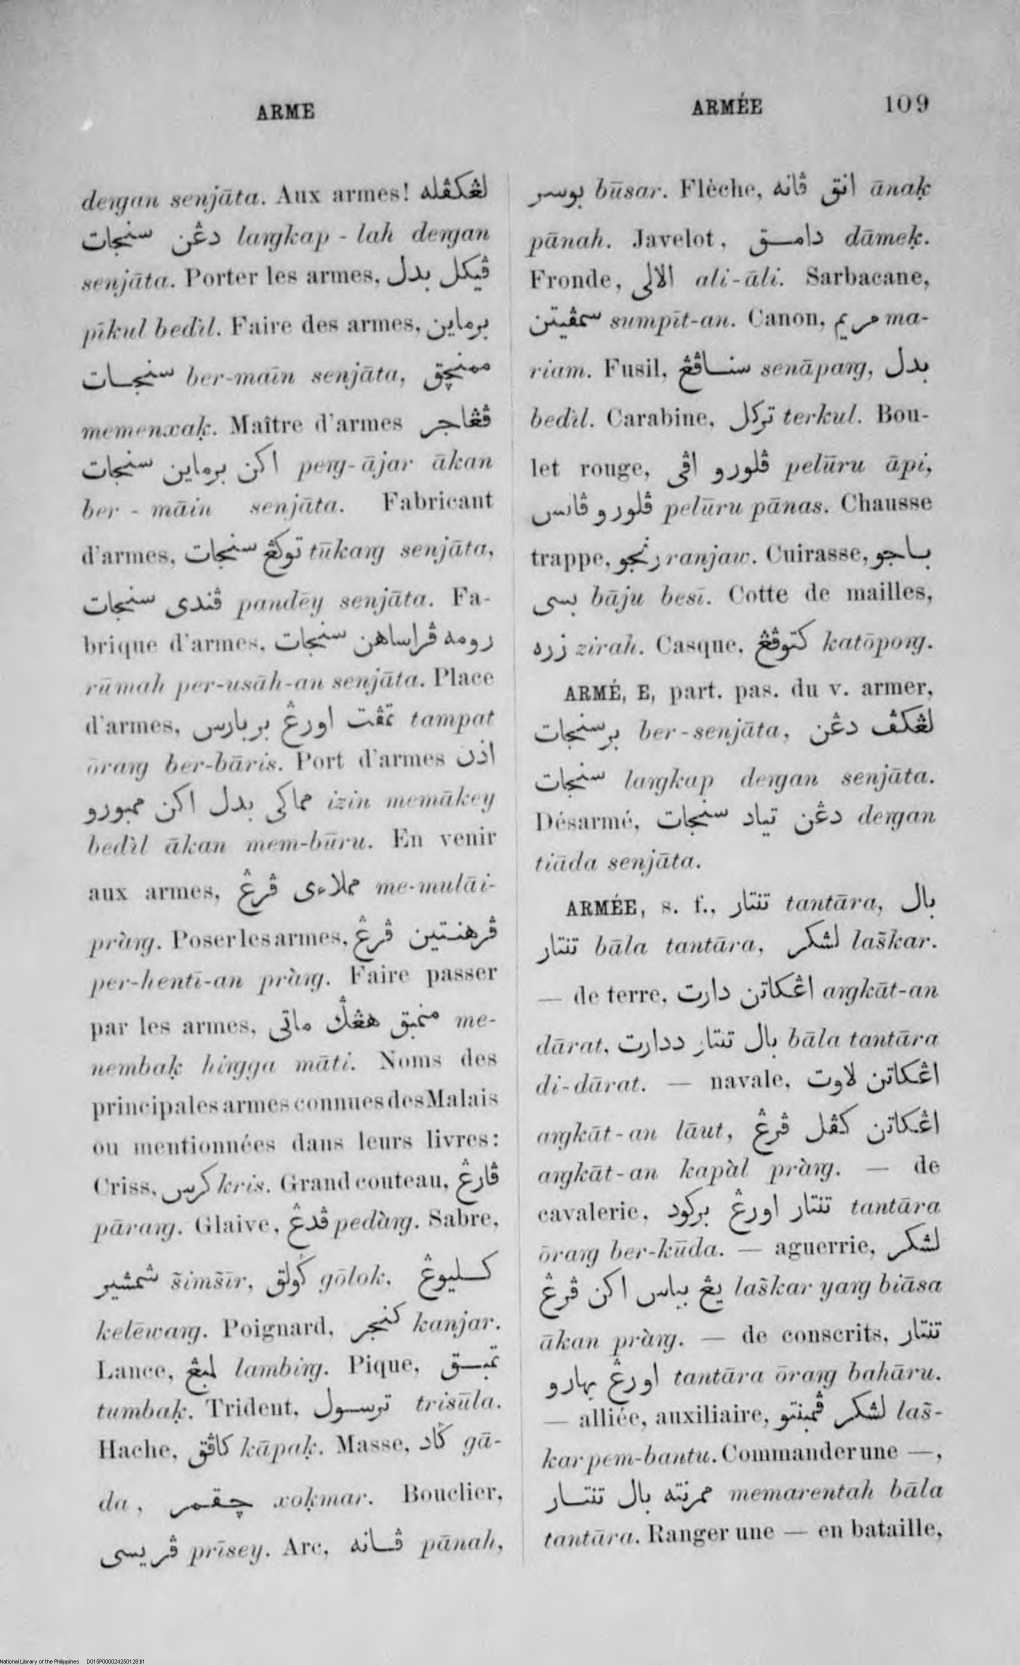 ARME
ARMÉE 109
deṅgan senjāta. Aux armes! لڠکڤله
دڠن سنجات laṅgkap - lah deṅgan
senjāta. Porter les armes, ڤيکل بدل
pīkul bedìl. Faire des armes, برماين
سنجات ber-maīn senjāta, ممنچق
memenxaḳ. Maître d'armes ڤڠاجر
اکن برماين سنجات peṅg-ājar ākan
ber - māin senjāta. Fabricant
d'armes, توکڠ سنجات tūkaṅg senjāta,
ڤندى سنجات pandēy senjāta. Fa-
brique d'armes, رومه ڤراساهن سنجات
rūmah per-usāh-an senjāta. Place
d'armes, تمڤت اورڠ بربارس tampat
ōraṅg ber-bāris. Port d'armes اذن
مماکى بدل اکن ممبورو izin memākey
bedìl ākan mem-būru. En venir
aux armes, مملاءى ڤرڠ me-mulāi-
pràṅg. Poser les armes, ڤرهنتين ڤرڠ
per-hentī-an pràṅg. Faire passer
par les armes, منمبق هڠڬ ماتى me-
nembaḳ hiṅgga māti. Noms des
principales armes connues des Malais
ou mentionnées dans leurs livres:
Criss, کرس kris. Grand couteau, ڤارڠ
pāraṅg. Glaive, ڤدڠ pedàṅg. Sabre,
شمشير s̃ims̃īr, ڬولق gōlok, کليوڠ
kelēwaṅg. Poignard, کنجر kanjar.
Lance, لمبڠ lambiṅg. Pique, تمبق
tumbaḳ. Trident, ترسول trisūla.
Hache, کاڤق kāpaḳ. Masse, ڬاد gā-
da, چقمر xoḳmar. Bouclier,
ڤريسى prīsey. Arc, ڤانه pānah,
بوسر būsar. Flèche, انق ڤانه ānaḳ
pānah. Javelot, دامق dāmeḳ.
Fronde, الالى ali-āli. Sarbacane,
سمڤيتن sumpīt-an. Canon, مريم ma-
riam. Fusil, سناڤڠ senāpaṅg, بدل
bedìl. Carabine, ترکل terkul. Bou-
let rouge, ڤلورو اڤى pelūru āpi,
ڤلورو ڤانس pelūru pānas. Chausse
trappe, رنجو ranjaw. Cuirasse, باجو
بسى bāju besī. Cotte de mailles,
زره zirah. Casque, کتوڤڠ katōpoṅg.
ARMÉ, E, part. pas. du v. armer,
برسنجات ber-senjāta, لڠکڤ دڠن
سنجات laṅgkap deṅgan senjāta.
Désarmé, دڠن تياد سنجات deṅgan
tiāda senjāta.
ARMÉE, s. f., تنتار tantāra, بال
تنتار bāla tantāra, لشکر las̃kar.
— de terre, اڠکاتن دارت aṅgkāt-an
dārat, بال تنتار ددارت bāla tantāra
di-dārat. — navale, اڠکاتن لاوت
aṅgkāt-an lāut, اڠکاتن کڤل ڤرڠ
aṅgkāt-an kapàl pràṅg. — de
cavalerie, تنتار اورڠ برکود tantāra
ōraṅg ber-kūda. — aguerrie, لشکر
يڠ بياس اکن ڤرڠ las̃kar yaṅg biāsa
ākan pràṅg. — de conscrits, تنتار
اورڠ بهارو tantāra ōraṅg bahāru.
— alliée, auxiliaire, لشکر ڤمبنتو las̃-
kar pem-bantu. Commander une —,
ممرنته بال تنتار memarentah bāla
tantāra. Ranger une — en bataille,
National Library of the Philippines